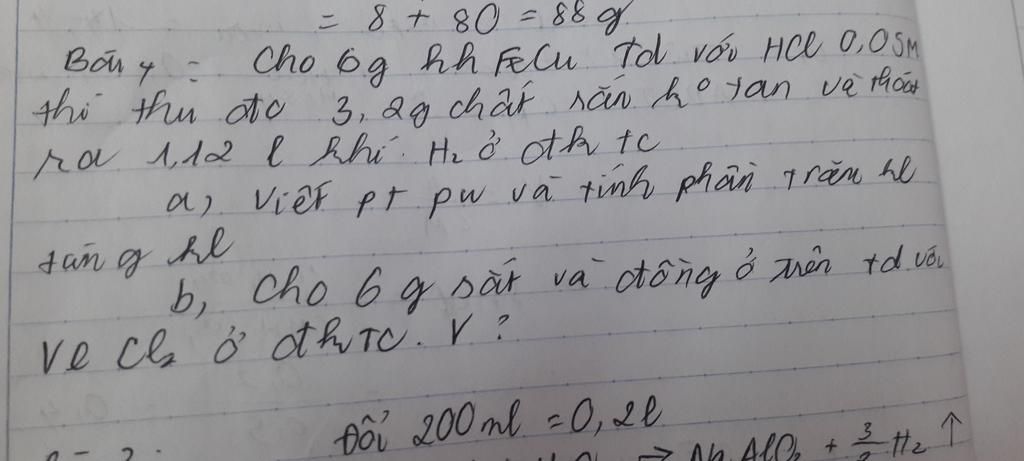 = 8 + 80 = 88 g
Bài 4 : Cho 6g hh FeCu Td với HCl 0,05M
thì thu đc 3,2g chất rắn ko tan và thoát
ra 1,12 l khí H₂ ở đktc
a, Viết pt pư và tính phần trăm kl
từng kl
b, Cho 6 g sắt và đồng ở trên td với
Vl Cl₂ ở đkTC. V ?
Đổi 200 ml = 0,2l
→ Na AlO₂ + 3/2 H₂ ↑